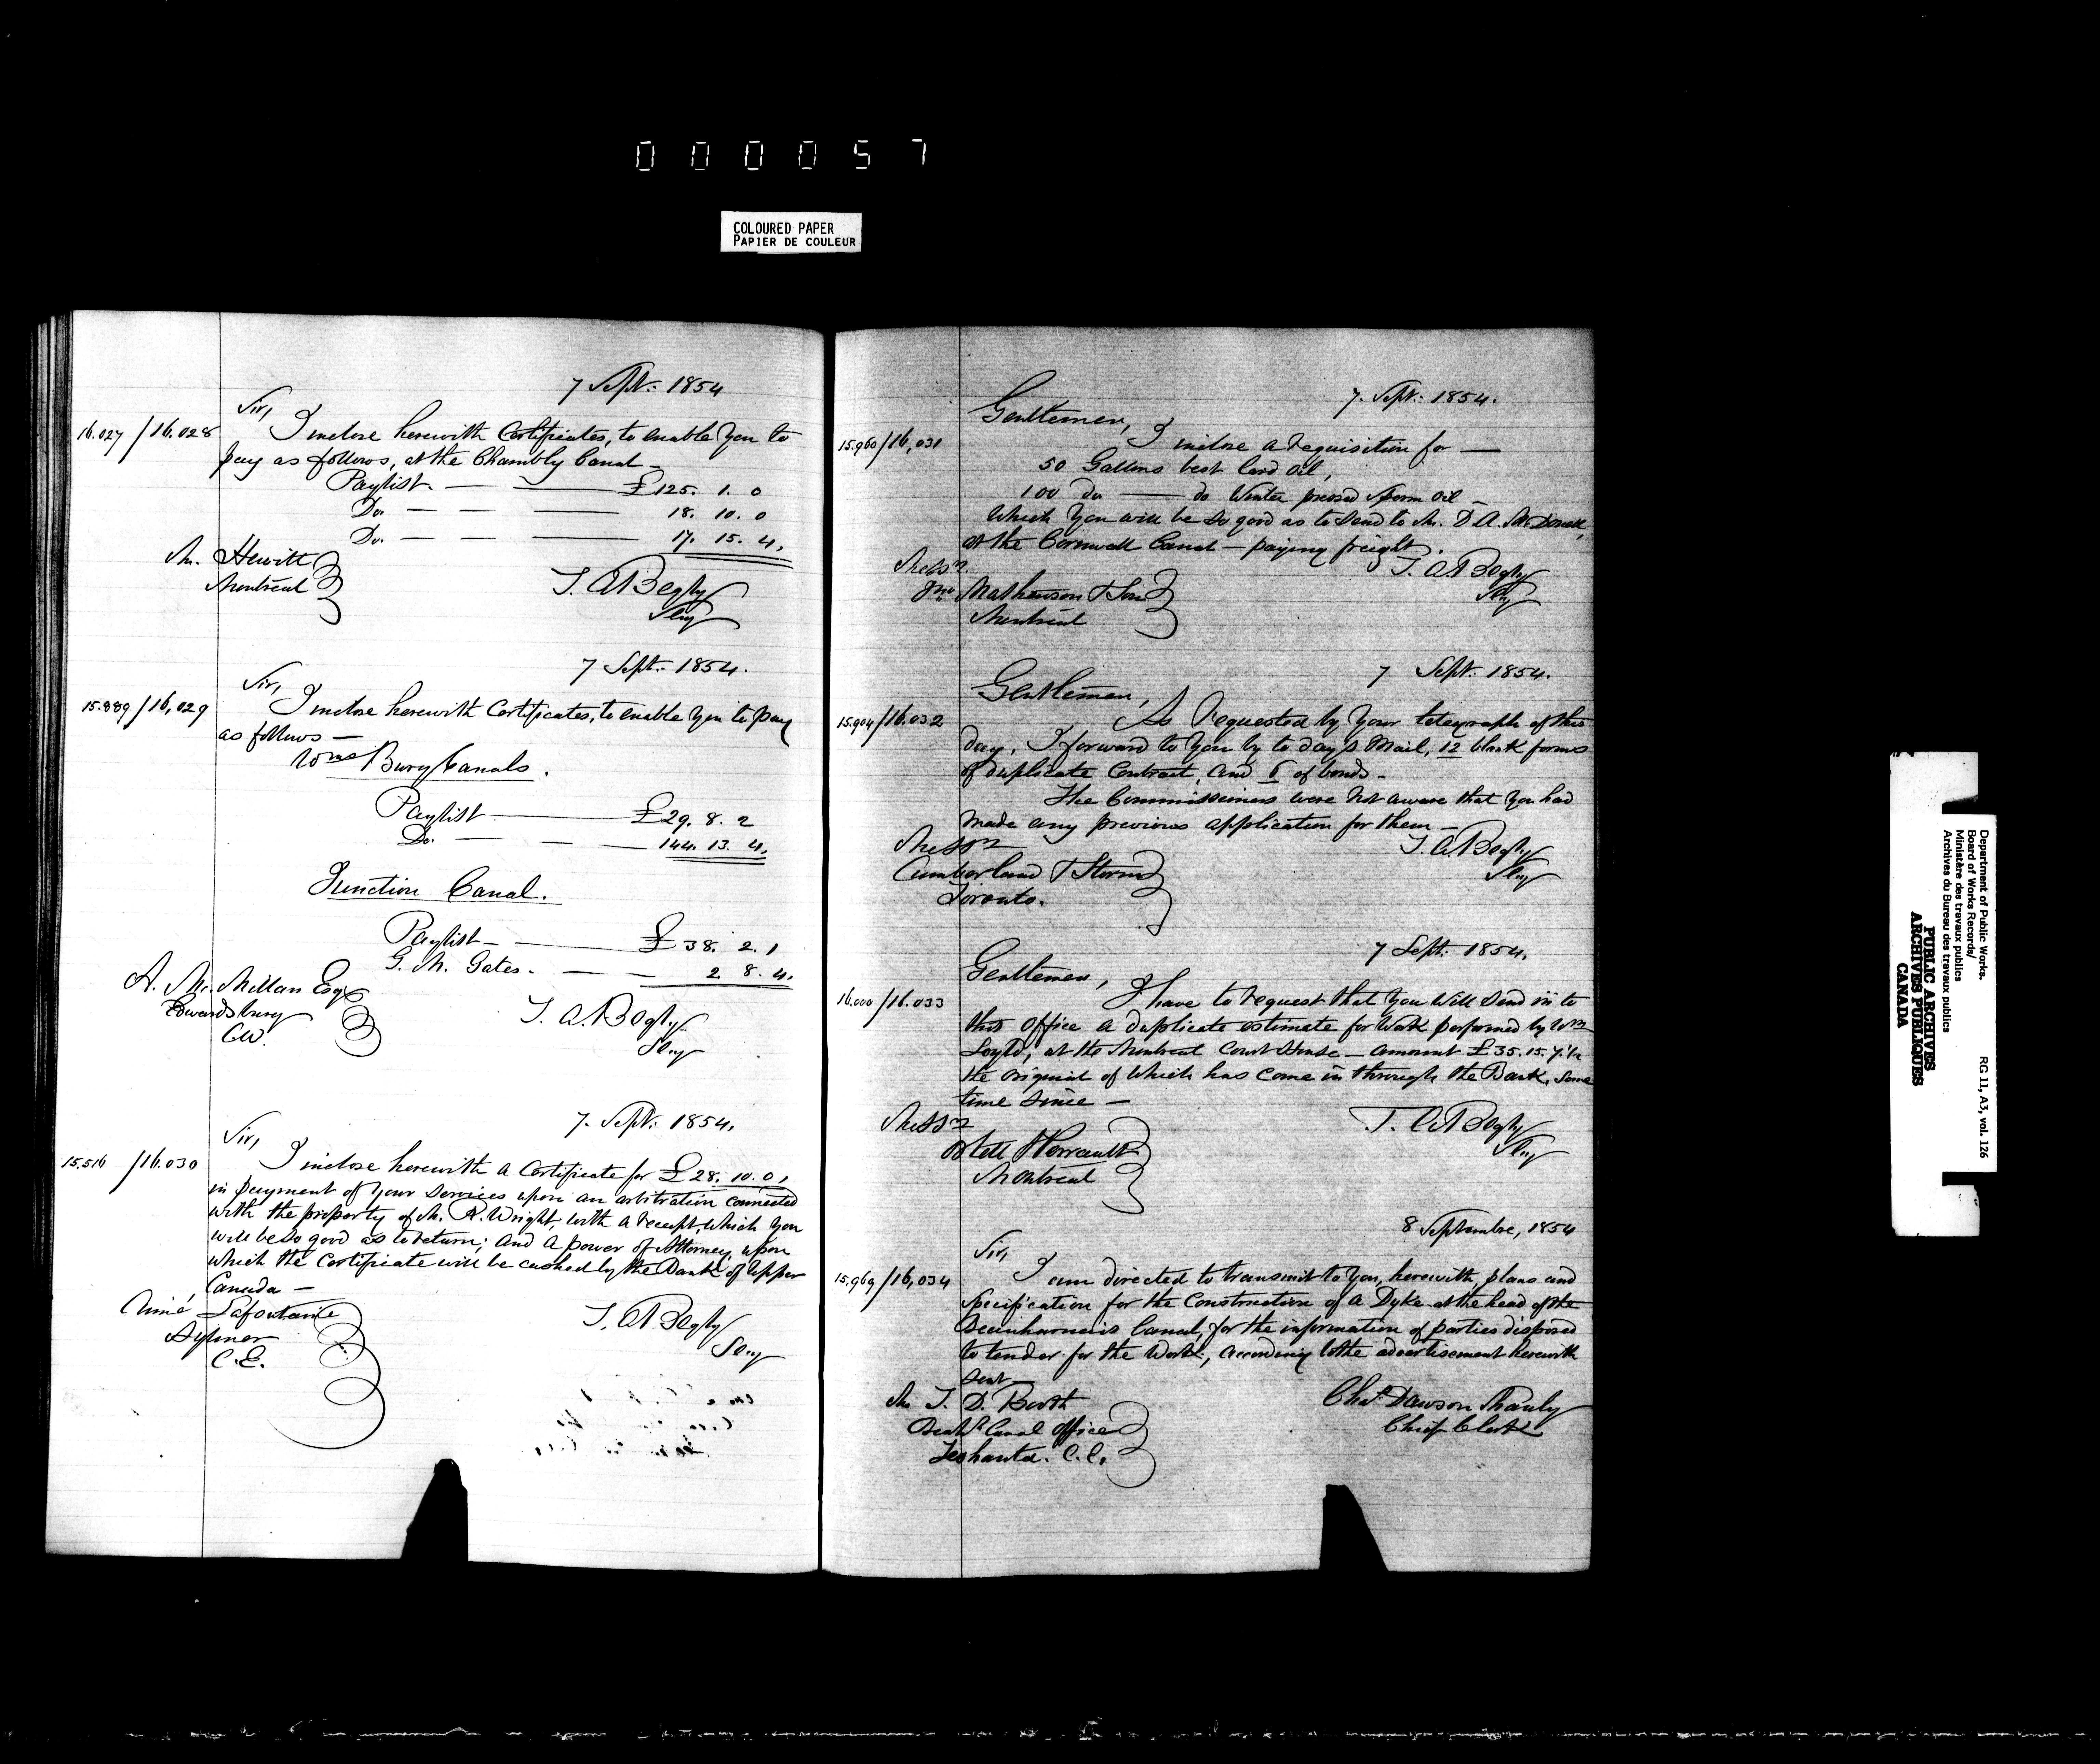 000057
COLOURED PAPER
PAPIER DE COULEUR
7 Sept: 1854
Sir,
16.027 / 16.028 I inclose herewith Certificates, to enable You to
pay as follows, at the Chambly Canal —
Paylist — £125. 1. 0
Do. — 18. 10. 0
Do. — 17. 15. 4.
Mr. Hewitt
Montreal
T. A. Begly
Secy
7 Sept: 1854.
Sir,
15.889 / 16,029 I inclose herewith Certificates, to enable You to pay
as follows —
Wms Burg Canals.
Paylist — £29. 8. 2
Do. — 144. 13. 4.
Junction Canal.
Paylist — £38. 2. 1
G. M. Gates. — 2 8. 4.
A. McMillan Esqr
Edwardsburg
C.W.
T. A. Begly
Secy
7. Sept: 1854.
Sir,
15.516 / 16.030 I inclose herewith a Certificate for £28. 10. 0,
in payment of Your Services upon an arbitration connected
with the property of Mr. R. Wright, with a receipt, which you
will be so good as to return; and a power of Attorney, upon
which the Certificate will be cashed by the Bank of Upper
Canada —
Aimé Lafontaine
Aylmer
C.E.
T. A. Begly
Secy
7. Sept: 1854.
Gentlemen,
15.960 / 16,031 I inclose a requisition for —
50 Gallons best Lard Oil,
100 do — do Winter pressed Sperm Oil —
Which You will be so good as to send to Mr. D. A. McDonell,
at the Cornwall Canal — paying freight.
T. A. Begly
Secy
Messrs
Jno Mathewson & Son
Montreal
7 Sept: 1854.
Gentlemen,
15.904 / 16.032 As requested by Your telegraph of this
day, I forward to You by to day's Mail, 12 blank forms
of duplicate Contract, and 6 of bonds —
The Commissioners were not aware that You had
made any previous application for them —
T. A. Begly
Secy
Messrs
Cumberland & Storm
Toronto.
7 Sept: 1854.
Gentlemen,
16.000 / 16.033 I have to request that You will send in to
this Office a duplicate estimate for Work performed by Wm
at the Montreal Court House — amount £35. 15. 7.½
the original of Which has come in through the Bank, some
time since —
T. A. Begly
Secy
Messrs
Ostell & Perrault
Montreal
8 September, 1854
Sir,
15,969 / 16,034 I am directed to transmit to You, herewith, plans and
Specification for the Construction of a Dyke at the head of the
Beauharnois Canal, for the information of parties disposed
to tender for the Work, according to the advertisement herewith
sent —
Chas Dawson Shanly
Chief Clerk
Mr T. D. Booth
Canal Office
C.E.
Department of Public Works.
Board of Works Records/
Ministère des travaux publics
Archives du Bureau des travaux publics
RG 11, A3, vol. 126
PUBLIC ARCHIVES
ARCHIVES PUBLIQUES
CANADA